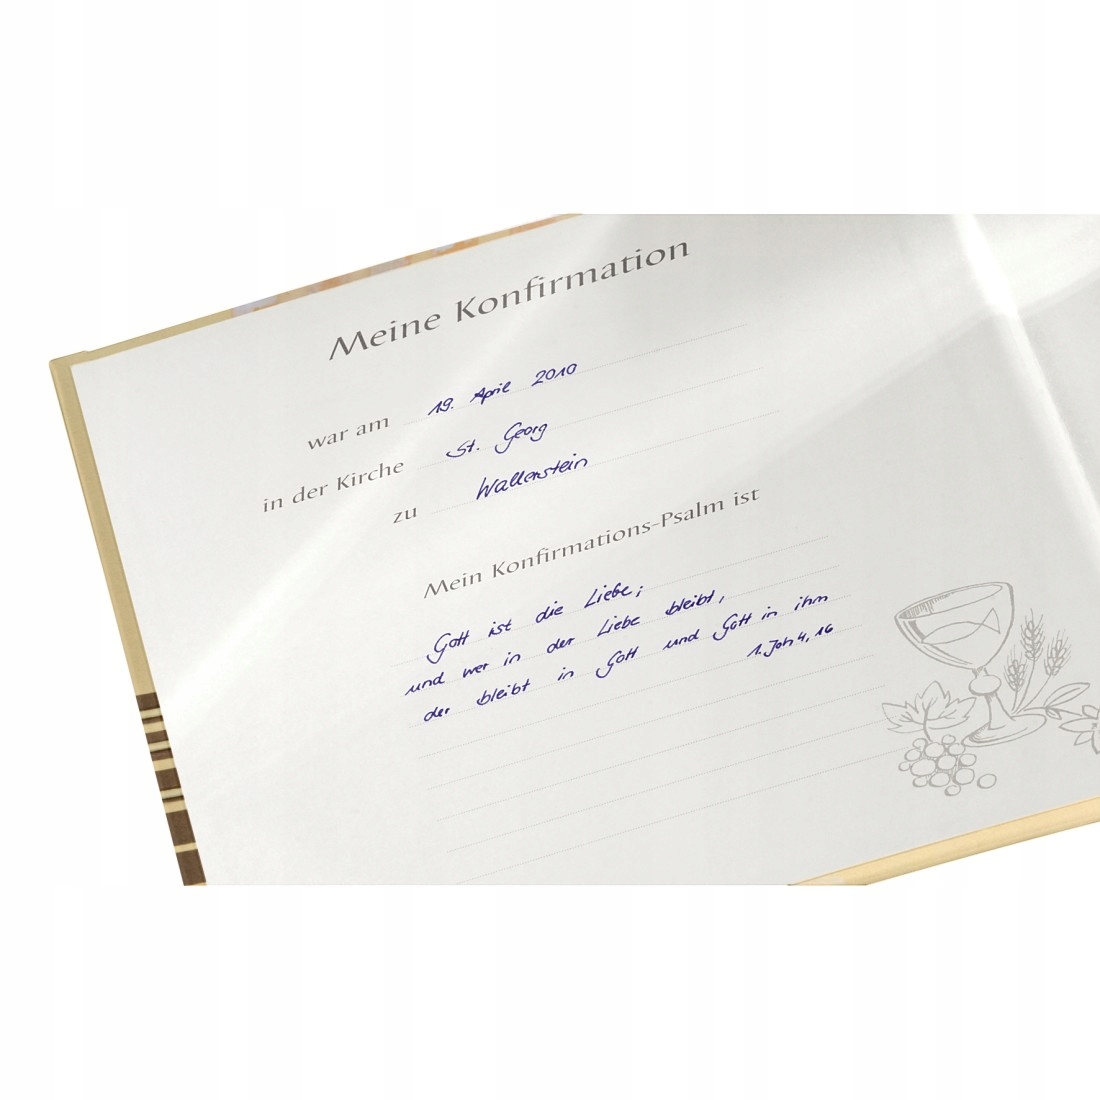 Meine Konfirmation
war am 19. April 2010
in der Kirche St. Georg
zu Wallerstein
Mein Konfirmations-Psalm ist
Gott ist die Liebe;
und wer in der Liebe bleibt,
der bleibt in Gott und Gott in ihm
1. Joh 4, 16